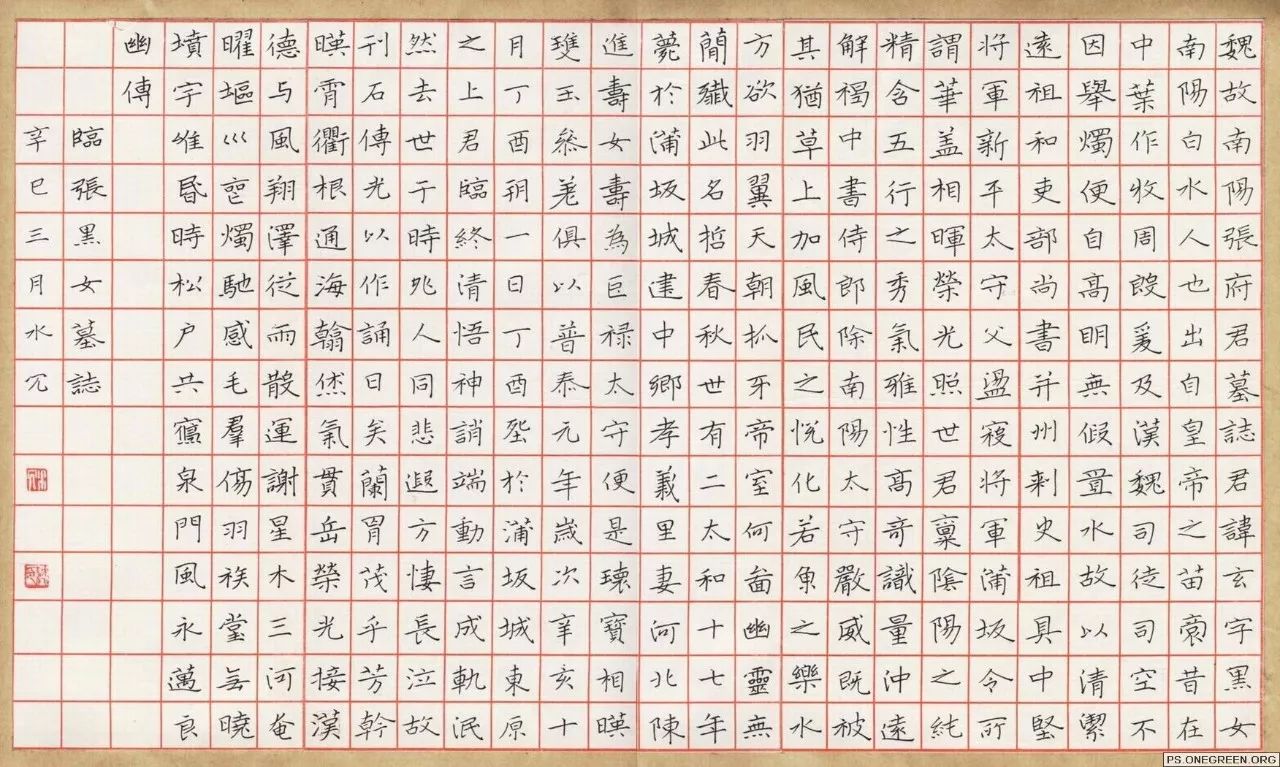 魏故南陽張府君墓誌君諱玄字黑女
南陽白水人也出自皇帝之苗裔昔在
中葉作牧周殷爰及漢魏司徒司空不
因舉燭便自高明無假置水故以清潔
遠祖和吏部尚書并州刺史祖具中堅
將軍新平太守父盪寇將軍蒲坂令所
謂華盖相暉榮光照世君稟陰陽之純
精含五行之秀氣雅性高奇識量沖遠
解褐中書侍郎除南陽太守嚴威既被
其猶草上加風民之悅化若魚之樂水
方欲羽翼天朝抓牙帝室何啚幽靈無
簡殲此名哲春秋世有二太和十七年
薨於蒲坂城建中鄉孝義里妻河北陳
進壽女壽為巨禄太守便是瑰寶相暎
雙玉叅差俱以普泰元年歲次辛亥十
月丁酉朔一日丁酉於蒲坂城東原
之上君臨終清悟神誚端動言成軌泯
然去世于時兆人同悲遐方悽長泣故
刊石傳光以作誦曰矣蘭冑茂乎芳幹
暎霄衢根通海翰烋氣貫岳榮光接漢
德与風翔澤從雨散運謝星木三河奄
曜塸巛燭馳感毛羣傷羽族堂無曉
墳宇唯昏時松户共泉門風永邁良
幽傳
臨張黑女墓誌
辛巳三月水冗
PS.ONEGREEN.ORG